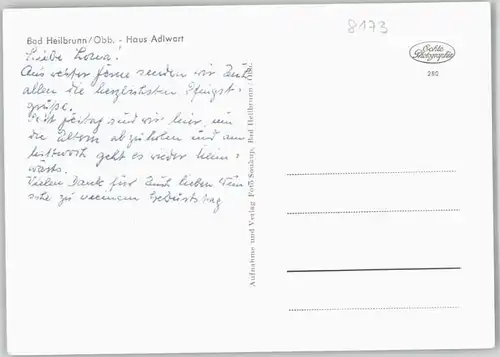 8173
Bad Heilbrunn/Obb. - Haus Adlwart
Echte Photographie
280
Liebe
Aus echter ferne senden wir Euch
allen die herzlichsten Pfingst-
grüße.
Seit Freitag sind wir hier, um
die Eltern abzuholen und am
Mittwoch geht es wieder heim-
wärts.
Vielen Dank für Euch lieben Wün-
sche zu meinem Geburtstag
Aufnahme und Verlag Foto Bad Heilbrunn / Obb.